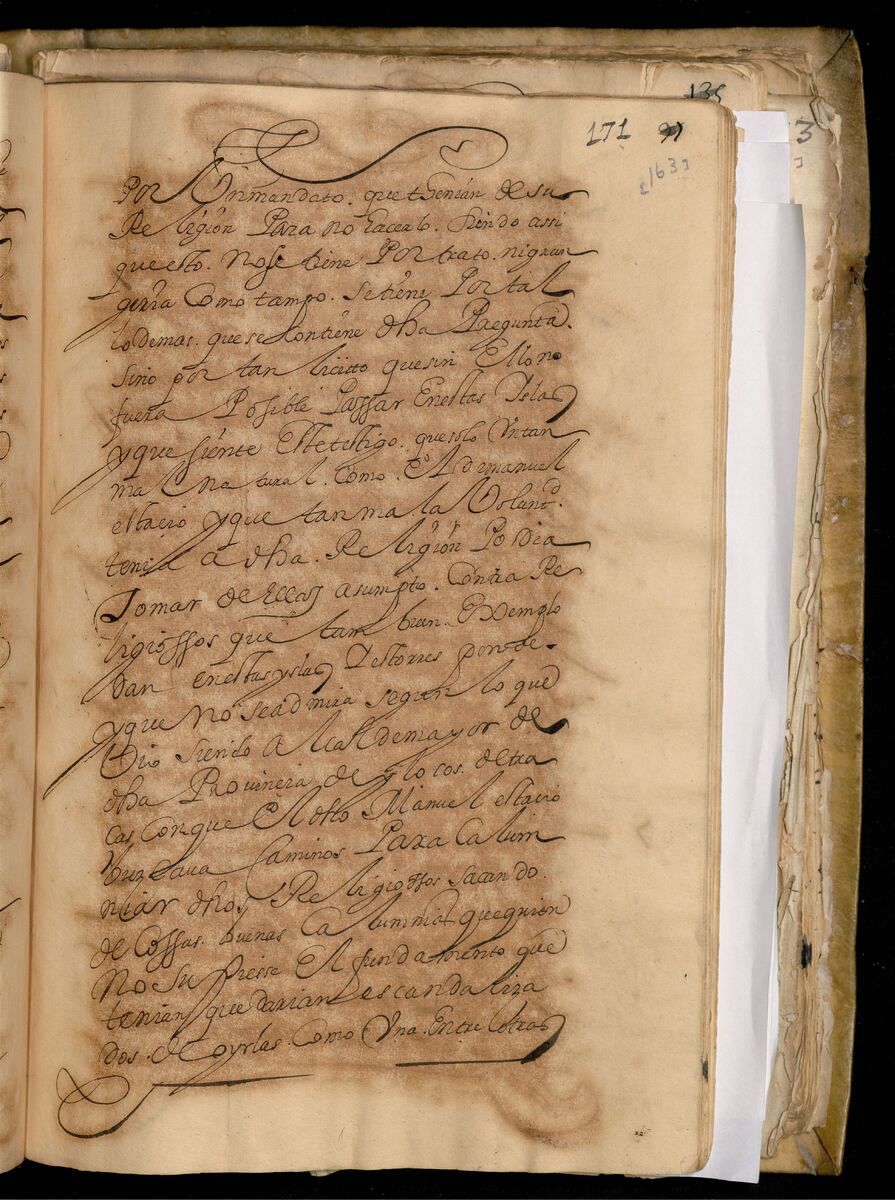 135
171 91
[163]
3
Por Un mandato. que tenian de su
Religion Para no hacerlo. siendo assi
que esto. nose tiene Por trato. nigran
geria Como tampo. se tiene Por tal
lo demas. que se Contiene dha Pregunta.
sino por tan licitto que sin Ello no
fuera Posible Passar En estas Yslas
y que siente Este testigo. que solo Un tan
mal natural. Como. El de manuel
estacio y que tan mala Volunt.d
tenia a dha. Religion Podia
Tomar de Ellas asumpto. Contra Re
ligiossos que tam buen. Exemplo
dan en estas yslas
y que no se admira segun lo que
Vio siendo Alcalde mayor de
dha Provincia de ylocos. de tra
cas Con que El dho Manuel estacio
buzcava Caminos Para Calum
niar dhos Religiossos sacando.
de Cossas. buenas Calumnias que quien
No supiesse El fundamento que
tenian quedarian escandaliza
dos. de oyrlas. Como Una. Entre otras